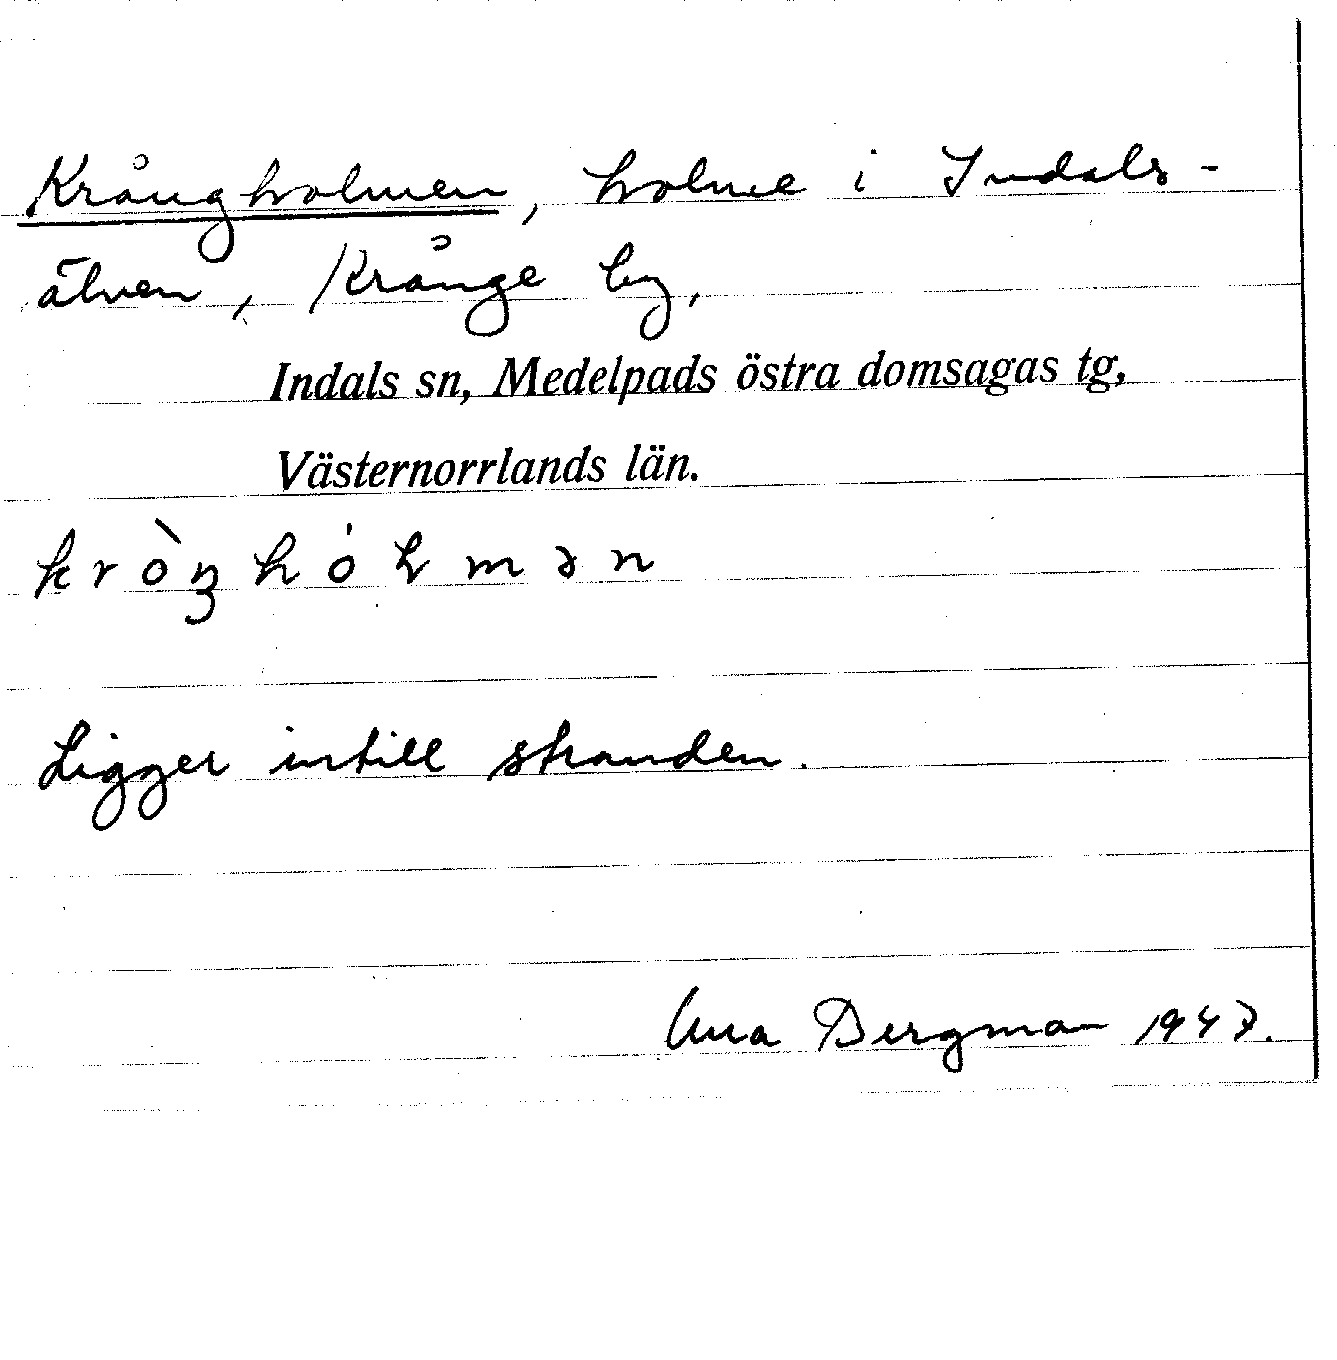 Krångholmen, holme i Indals-
älven, Krånge by,
Indals sn, Medelpads östra domsagas tg,
Västernorrlands län.
kròŋhólmən
Ligger intill stranden.
Bergman 1947.